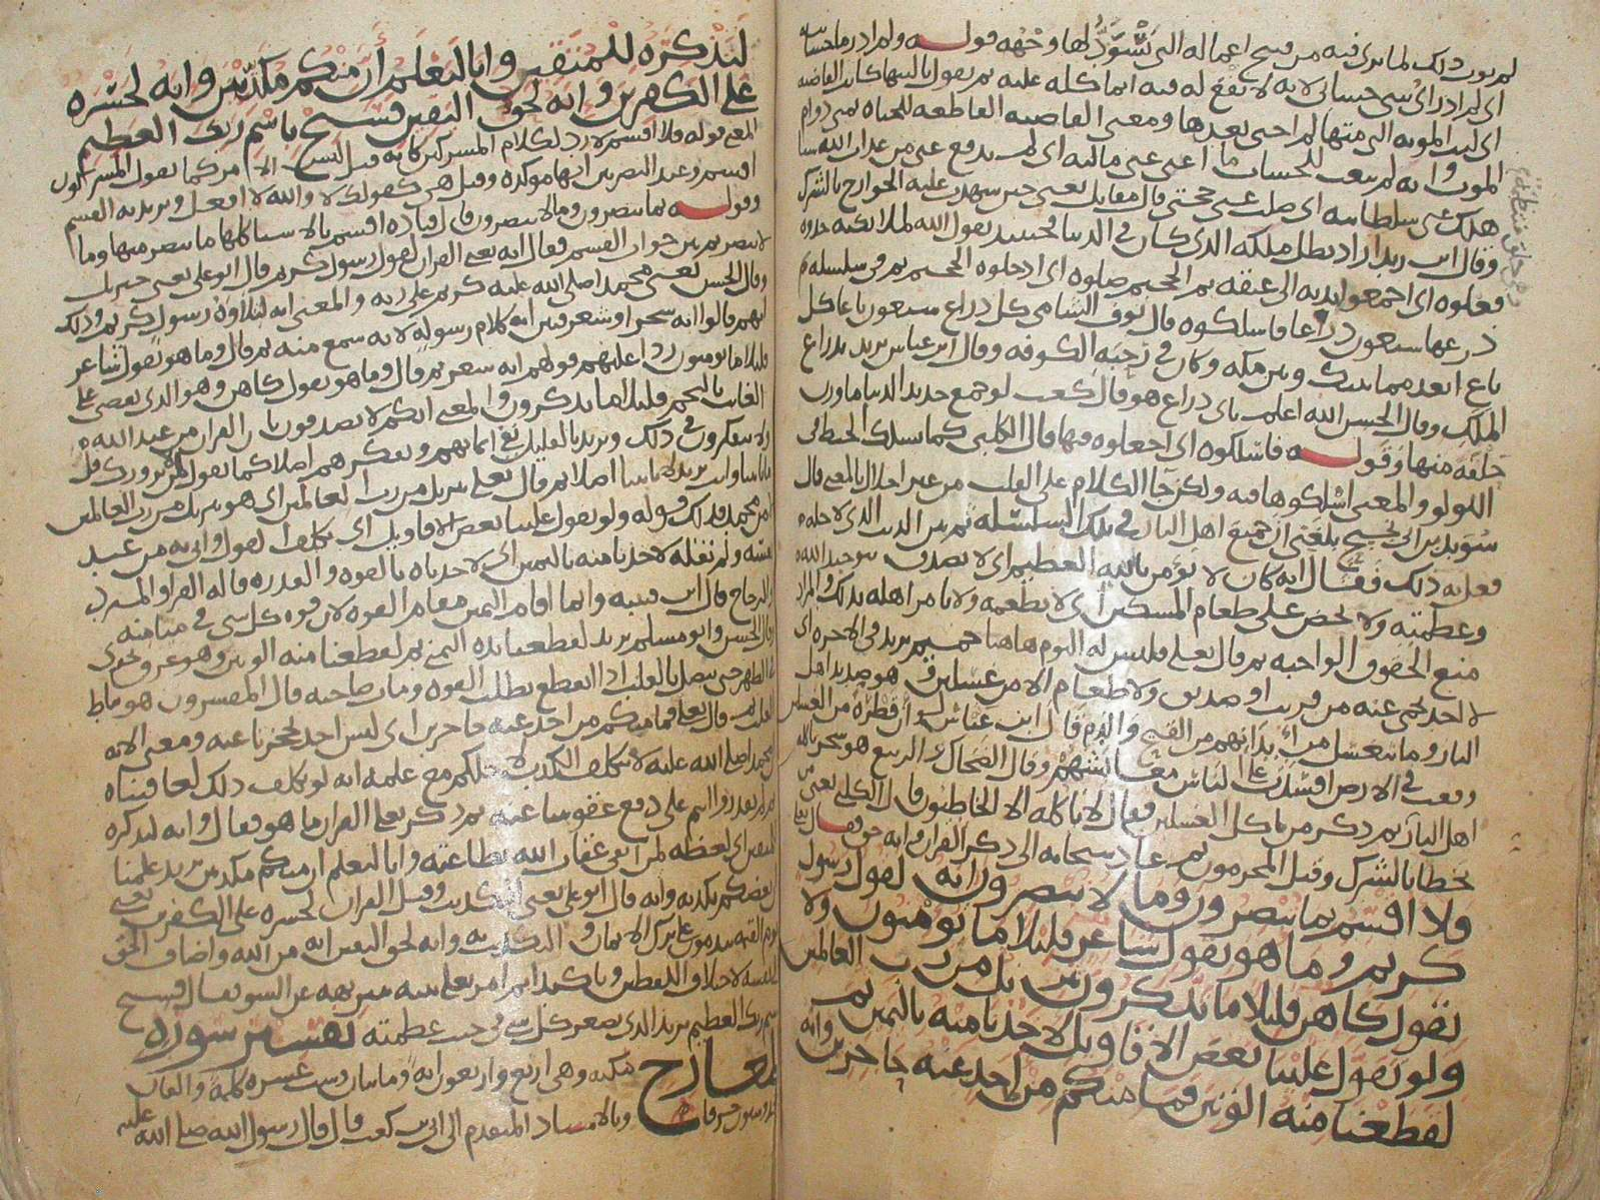 لم يوت ذلك لما يرى فيه من قبيح اعماله التى تُسَوَّدُ لها وجهه قوله ولم ادر ما حسابيه
اى لم ادر اى شى حسابى لانه لا يقع له فيه انما كله عليه ثم يقول ياليتها كانت القاضيه
اى ليت الموته التى متها لم احى بعدها ومعنى القاضيه القاطعه للحياه تمنى دوام
الموت وانه لم يبعث للحساب ما اغنى عنى ماليه اى لم يدفع عنى من عذاب الله شيا
هلك عنى سلطانيه اى ضلت عنى حجتى قال مقاتل يعنى حين شهدت عليه الجوارح بالشرك
وقال ابن زيد اراد بطل ملكه الذى كان فى الدنيا فحينيذ يقول الله لملائكته خذوه
فغلوه اى اجمعوا يديه الى عنقه ثم الجحيم صلوه اى ادخلوه الجحيم ثم فى سلسله
ذرعها سبعون ذراعا فاسلكوه قال نوف الشامى كل ذراع سبعون باعا كل
باع ابعد مما بينك وبين مكه وكان فى رحبه الكوفه وقال ابن عباس يريد بذراع
الملك وقال الحسن الله اعلم باى ذراع هو قال كعب لو جمع حديد الدنيا ما وزن
حلقه منها وقوله فاسلكوه اى اجعلوه فيها قال الكلبى كما يسلك الخيط فى
اللولو والمعنى اسلكوها فيه ولكن جا الكلام على القلب من غير اخلال بالمعنى قال
سويد بن ابى نجيح بلغنى ان جميع اهل النار فى تلك السلسله ثم بين الذنب الذى لاجله
فعل به ذلك فقال انه كان لا يومن بالله العظيم اى لا يصدق بتوحيد الله
وعظمته ولا يحض على طعام المسكين اى لا يطعمه ولا يامر اهله بذلك والمراد
منع الحقوق الواجبه ثم قال تعلى فليس له اليوم هاهنا حميم يريد فى الاخره اى
لا احد يحمى عنه من قريب او صديق ولا طعام الا من غسلين وهو صديد اهل
النار وما ينغسل من ابدانهم من القيح والدم قال ابن عباس لو ان قطره من الغسلين
وقعت فى الارض افسدت على الناس معايشهم وقال الضحاك والربيع هو شجر ياكله
اهل النار ثم ذكر من ياكل الغسلين فقال لا ياكله الا الخاطئون قال الكلبى يعنى من
يخطا بالشرك وقيل المجرمون ثم عاد سبحانه الى ذكر القران وانه حق فقال تعلى
فلا اقسم بما تبصرون وما لا تبصرون انه لقول رسول
كريم وما هو بقول شاعر قليلا ما تومنون ولا
بقول كاهن قليلا ما تذكرون تنزيل من رب العالمين
ولو تقول علينا بعض الاقاويل لاخذنا منه باليمين ثم
لقطعنا منه الوتين فما منكم من احد عنه حاجزين وانه
لتذكره للمتقين وانا لنعلم أن منكم مكذبين وانه لحسره
على الكفرين وانه لحق اليقين فسبح باسم ربك العظيم
المعنى قوله فلا اقسم لا رد لكلام المشركين كانه قيل ليس الامر كما يقول المشركون
اقسم وعند البصريين انها موكده وقيل هى كقولك لا والله لا افعل ويريد به القسم
وقوله بما تبصرون وما لا تبصرون قال قتاده اقسم بالاشيا كلها ما تبصر منها وما
لا تبصر ثم بين جواب القسم فقال انه يعنى القران لقول رسول كريم قال ابو على يعنى جبريل
وقال الحسن يعنى محمدا صلى الله عليه كريم على ربه والمعنى انه لتلاوه رسول كريم وذلك
انهم قالوا انه سحر او شعر فبين انه كلام رسوله لانه سمع منه ثم قال وما هو بقول شاعر
قليلا ما تومنون ردا عليهم قولهم انه شعر ثم قال وما هو بقول كاهن وهو الذى يقضى على
الغائب بالنجم قليلا ما تذكرون والمعنى انكم لا تصدقون بان القران من عند الله
ولا تتفكرون فى ذلك ويريد بالقليل نفى ايمانهم وتفكرهم اصلا كما تقول لمن لا يزورك قل
ما تاتينا وانت تريد لا تاتينا اصلا ثم قال تعلى تنزيل من رب العالمين اى هو تنزيل من رب العالمين
من محمد فذلك قوله ولو تقول علينا بعض الاقاويل اى تكلف القول واتى به من عند
نفسه ولم نقله لاخذنا منه باليمين اى لاخذناه بالقوه والقدره قاله الفرا والمبرد
والزجاج قال ابن قتيبه وانما اقام اليمين مقام القوه لان قوه كل شى فى ميامنه
وقال الحسن وابو مسلم يريد لقطعنا يده اليمنى ثم لقطعنا منه الوتين وهو عرق يجرى
فى الظهر حتى يتصل بالقلب اذا انقطع بطلت القوه ومات صاحبه قال المفسرون هو نياط
القلب ثم قال تعلى فما منكم من احد عنه حاجزين اى ليس احد يحجزنا عنه ومعنى الايه
ان محمدا صلى الله عليه لا يتكلف الكذب لاجلكم مع علمه انه لو تكلف ذلك لعاقبناه
ثم لم تقدروا انتم على دفع عقوبتنا عنه ثم ذكر تعلى القران ما هو فقال وانه لتذكره
للمتقين اى لعظه لمن اتقى عقاب الله بطاعته وانا لنعلم ان منكم مكذبين يريد علمنا
بعضكم يكذبه وانه قال ابو على يعنى التكذيب وقيل القران لحسره على الكفرين يعنى
يوم القيمه يندمون على ترك الايمان والتكذيب به وانه لحق اليقين انه من الله واضاف الحق
لنفسه لاختلاف اللفظين وتاكيدا ثم امر تعلى نبيه بتنزيهه عن السو فقال فسبح
باسم ربك العظيم يريد الذى يصغر كل شى فى جنب عظمته تفسير سوره
المعارج مكيه وهى اربع واربعون ايه ومايتان وست عشره كلمه والف
وستون حرفا وبالاسناد المتقدم الى ابى بن كعب قال قال رسول الله صلى الله عليه